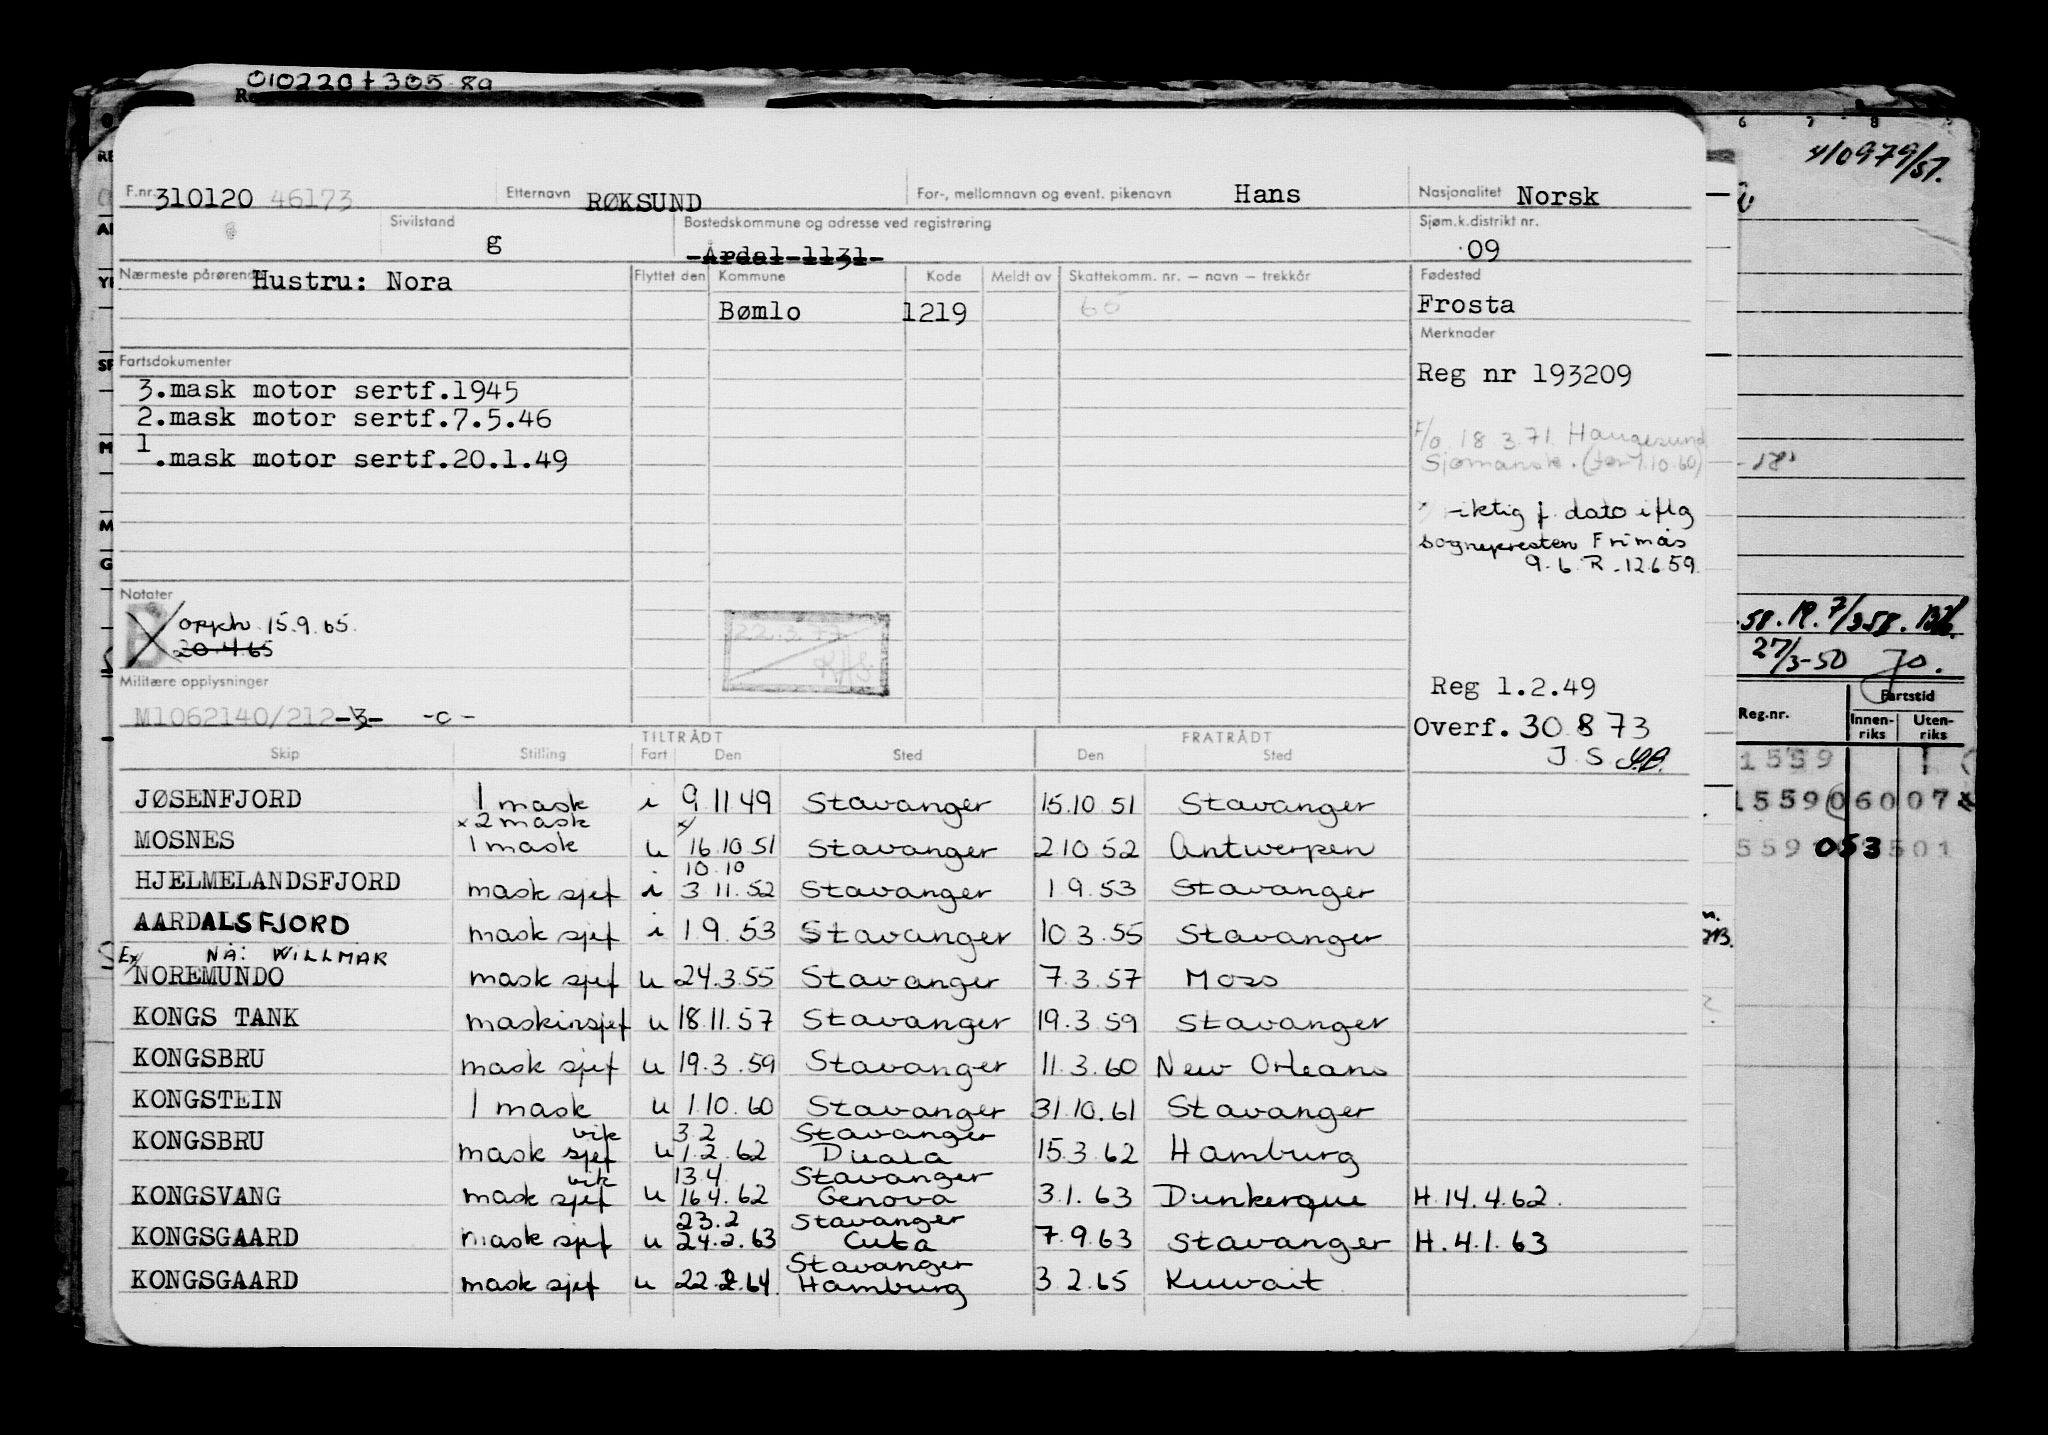 010220+305.89
410979/51.
F.nr. 310120 46173 Etternavn RØKSUND For-, mellomnavn og event. pikenavn Hans Nasjonalitet Norsk
Sivilstand g Bostedskommune og adresse ved registrering Årdal 1131 Sjøm.k.distrikt nr. 09
Nærmeste pårørende Hustru: Nora Flyttet den Kommune Kode Meldt av Skattekomm. nr. — navn — trekkår Fødested
Bømlo 1219 65 Frosta
Merknader
Fartsdokumenter
Reg nr 193209
3.mask motor sertf.1945
2.mask motor sertf.7.5.46
1.mask motor sertf.20.1.49
F/o 18 3.71 Haugesund
Sjømansk. (før 1.10.60)
riktig f. dato iflg
sognepresten
9.6.R.12659
Notater
B opph 15.9.65
20.4.65
22.3.77
Militære opplysninger
M1062140/212-3- -c-
Reg 1.2.49
Overf. 30 8 73
J. S.
27/3-50
Reg.nr. Fartstid
Innen-riks Uten-riks
TILTRÅDT FRATRÅDT
Skip Stilling Fart Den Sted Den Sted
JØSENFJORD 1 mask i 9.11.49 Stavanger 15.10.51 Stavanger
x 2 mask x/
MOSNES 1 mask u 16.10.51 Stavanger 2.10.52 Antwerpen
10.10
HJELMELANDSFJORD mask sjef i 3.11.52 Stavanger 1.9.53 Stavanger
AARDALSFJORD mask sjef i 1.9.53 Stavanger 10.3.55 Stavanger
Ex NÅ: WILLMAR
NOREMUNDO mask sjef u 24.3.55 Stavanger 7.3.57 Moss
KONGS TANK maskinsjef u 18.11.57 Stavanger 19.3.59 Stavanger
KONGSBRU mask sjef u 19.3.59 Stavanger 11.3.60 New Orleans
KONGSTEIN 1 mask u 1.10.60 Stavanger 31.10.61 Stavanger
vik 3.2 Stavanger
KONGSBRU mask sjef u 1.2.62 Duala 15.3.62 Hamburg
vik 13.4. Stavanger
KONGSVANG mask sjef u 16.4.62 Genova 3.1.63 Dunkerque H.14.4.62.
23.2 Stavanger
KONGSGAARD mask sjef u 24.2.63 Cuba 7.9.63 Stavanger H.4.1.63
Stavanger
KONGSGAARD mask sjef u 22.2.64. Hamburg 3.2.65 Kuwait